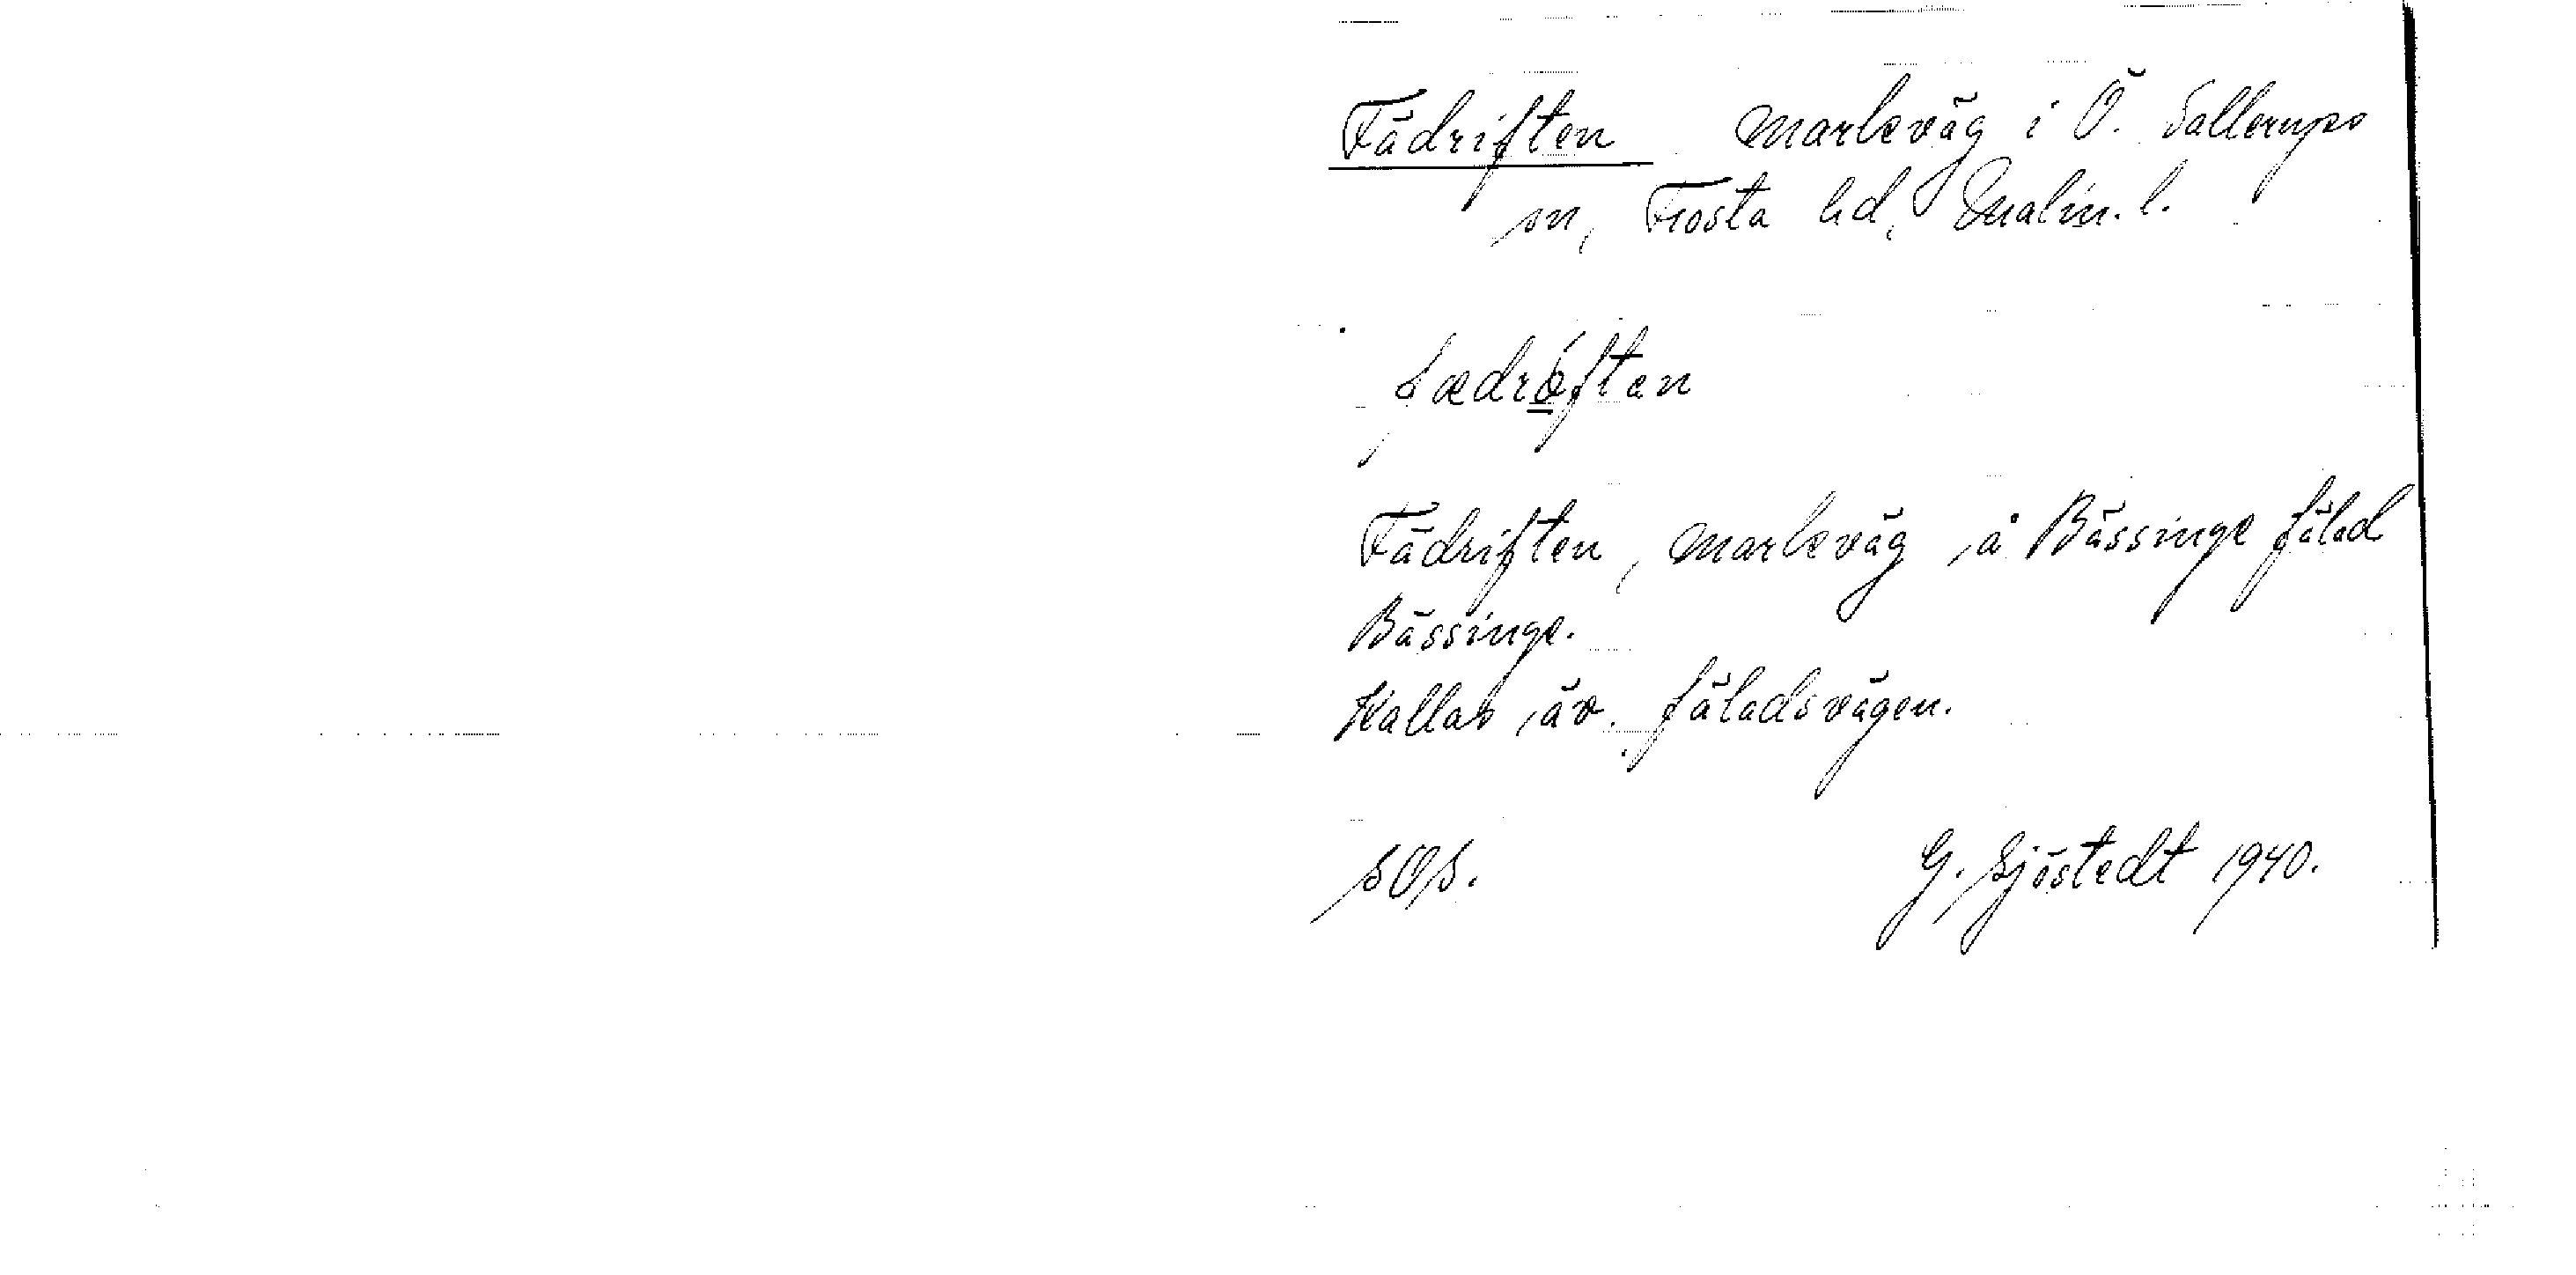 Fädriften markväg i Ö. Sallerups
sn, Frosta hd, Malm. l.
fædræ̱ften
Fädriften, markväg å Bässinge fälad
Bässinge.
Kallas äv. fäladsvägen.
SOS. G. Sjöstedt 1940.